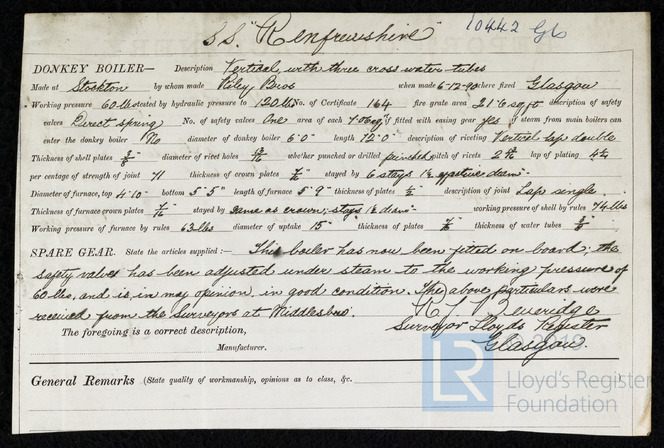 10442 Gls
S.S. "Renfrewshire"
DONKEY BOILER— Description Vertical with three cross water tubes
Made at Stockton by whom made Riley Bros when made 6-12-90 where fixed Glasgow
Working pressure 60 lbs tested by hydraulic pressure to 120 lbs No. of Certificate 164 fire grate area 21'6 sq ft description of safety
valves Direct spring No. of safety valves One area of each 7.06 sq" if fitted with easing gear yes if steam from main boilers can
enter the donkey boiler No diameter of donkey boiler 6'0" length 12'0" description of riveting Vertical lap double
Thickness of shell plates diameter of rivet holes whether punched or drilled punched pitch of rivets lap of plating
per centage of strength of joint 71 thickness of crown plates stayed by 6 stays effective diam-
Diameter of furnace, top 4'10" bottom 5'5" length of furnace 5'9" thickness of plates description of joint Lap single.
Thickness of furnace crown plates stayed by same as crown; stays diam- working pressure of shell by rules 74 lbs
Working pressure of furnace by rules 63 lbs diameter of uptake 15" thickness of plates thickness of water tubes
SPARE GEAR. State the articles supplied:— This boiler has now been fitted on board; the
safety valves has been adjusted under steam to the working pressure of
60 lbs, and is in my opinion in good condition. The above particulars were
received from the Surveyors at Middlesbro.
The foregoing is a correct description,
Manufacturer.
R. J. Beveridge
Surveyor Lloyds Register
Glasgow.
General Remarks (State quality of workmanship, opinions as to class, &c.
LR
Lloyd's Register
Foundation